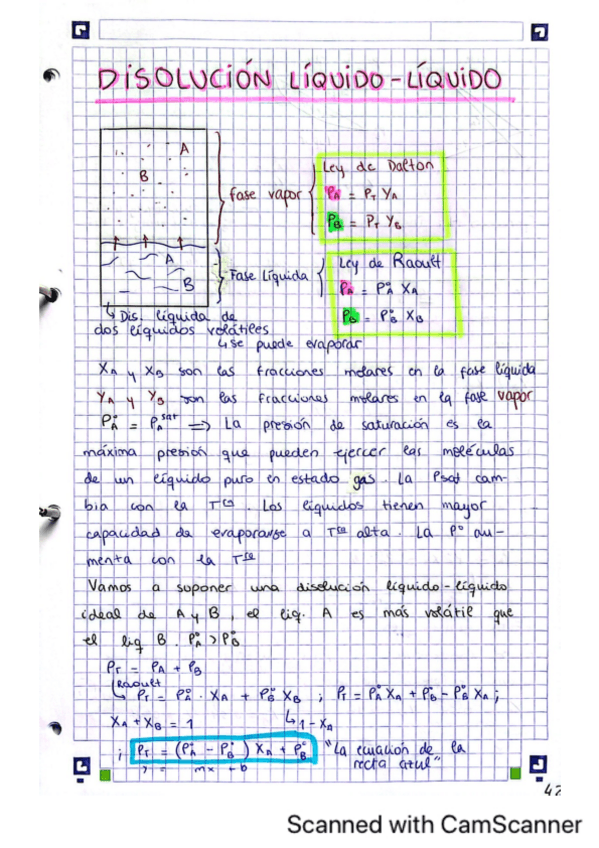 DISOLUCIÓN LÍQUIDO-LÍQUIDO
A
B
fase vapor
Ley de Dalton
PA = PT YA
PB = PT YB
A
B
Fase líquida
Ley de Raoult
PA = P°A XA
PB = P°B XB
↳ Dis. líquida de
dos líquidos volátiles
↳ se puede evaporar
XA y XB son las fracciones molares en la fase líquida
YA y YB son las fracciones molares en la fase vapor
P°A = PA sat => La presión de saturación es la
máxima presión que pueden ejercer las moléculas
de un líquido puro en estado gas. La Psat cam-
bia con la Tra. Los líquidos tienen mayor
capacidad de evaporarse a Tra alta. La P° au-
menta con la Tra
Vamos a suponer una disolución líquido-líquido
ideal de A y B, el liq. A es más volátil que
el liq B. P°A > P°B
PT = PA + PB
Raoult
↳ PT = P°A · XA + P°B XB ; PT = P°A XA + P°B - P°B XA ;
XA + XB = 1 ↳ 1-XA
; PT = (P°A - P°B) XA + P°B "La ecuación de la
y = mx + b recta azul"
42
Scanned with CamScanner